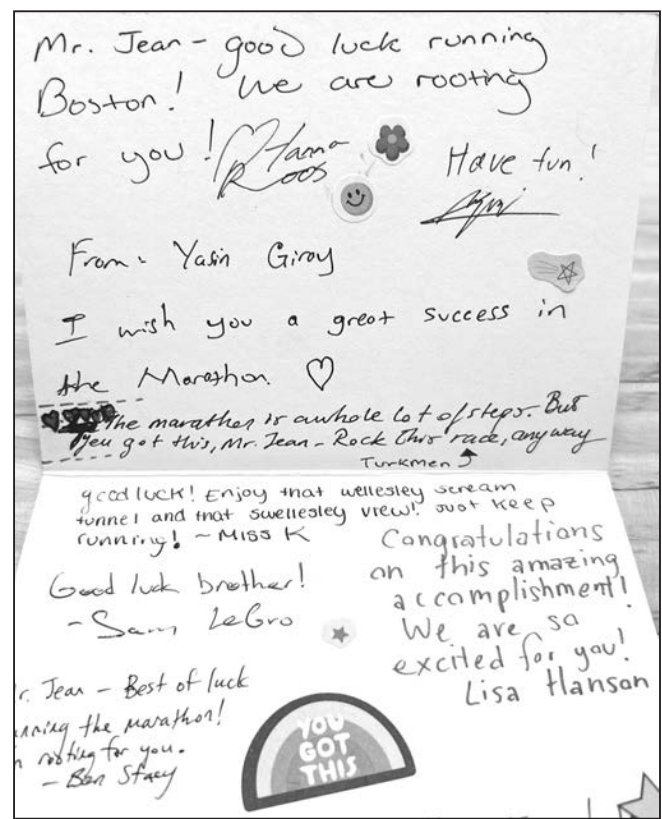 Mr. Jean - good luck running
Boston! We are rooting
for you! Hanna
Roos
Have fun!
From: Yasin Giray
I wish you a great success in
the Marathon ♡
The marathon is a whole lot of steps. But
you got this, Mr. Jean - Rock this race, anyway
Turkmen
good luck! Enjoy that wellesley scream
tunnel and that swellesley view! Just keep
running! ~ Miss K
Good luck brother!
- Sam LeGro
Congratulations
on this amazing
accomplishment!
We are so
excited for you!
Lisa Hanson
r. Jean - Best of luck
nning the marathon!
rooting for you.
- Ben Stacy
YOU
GOT
THIS